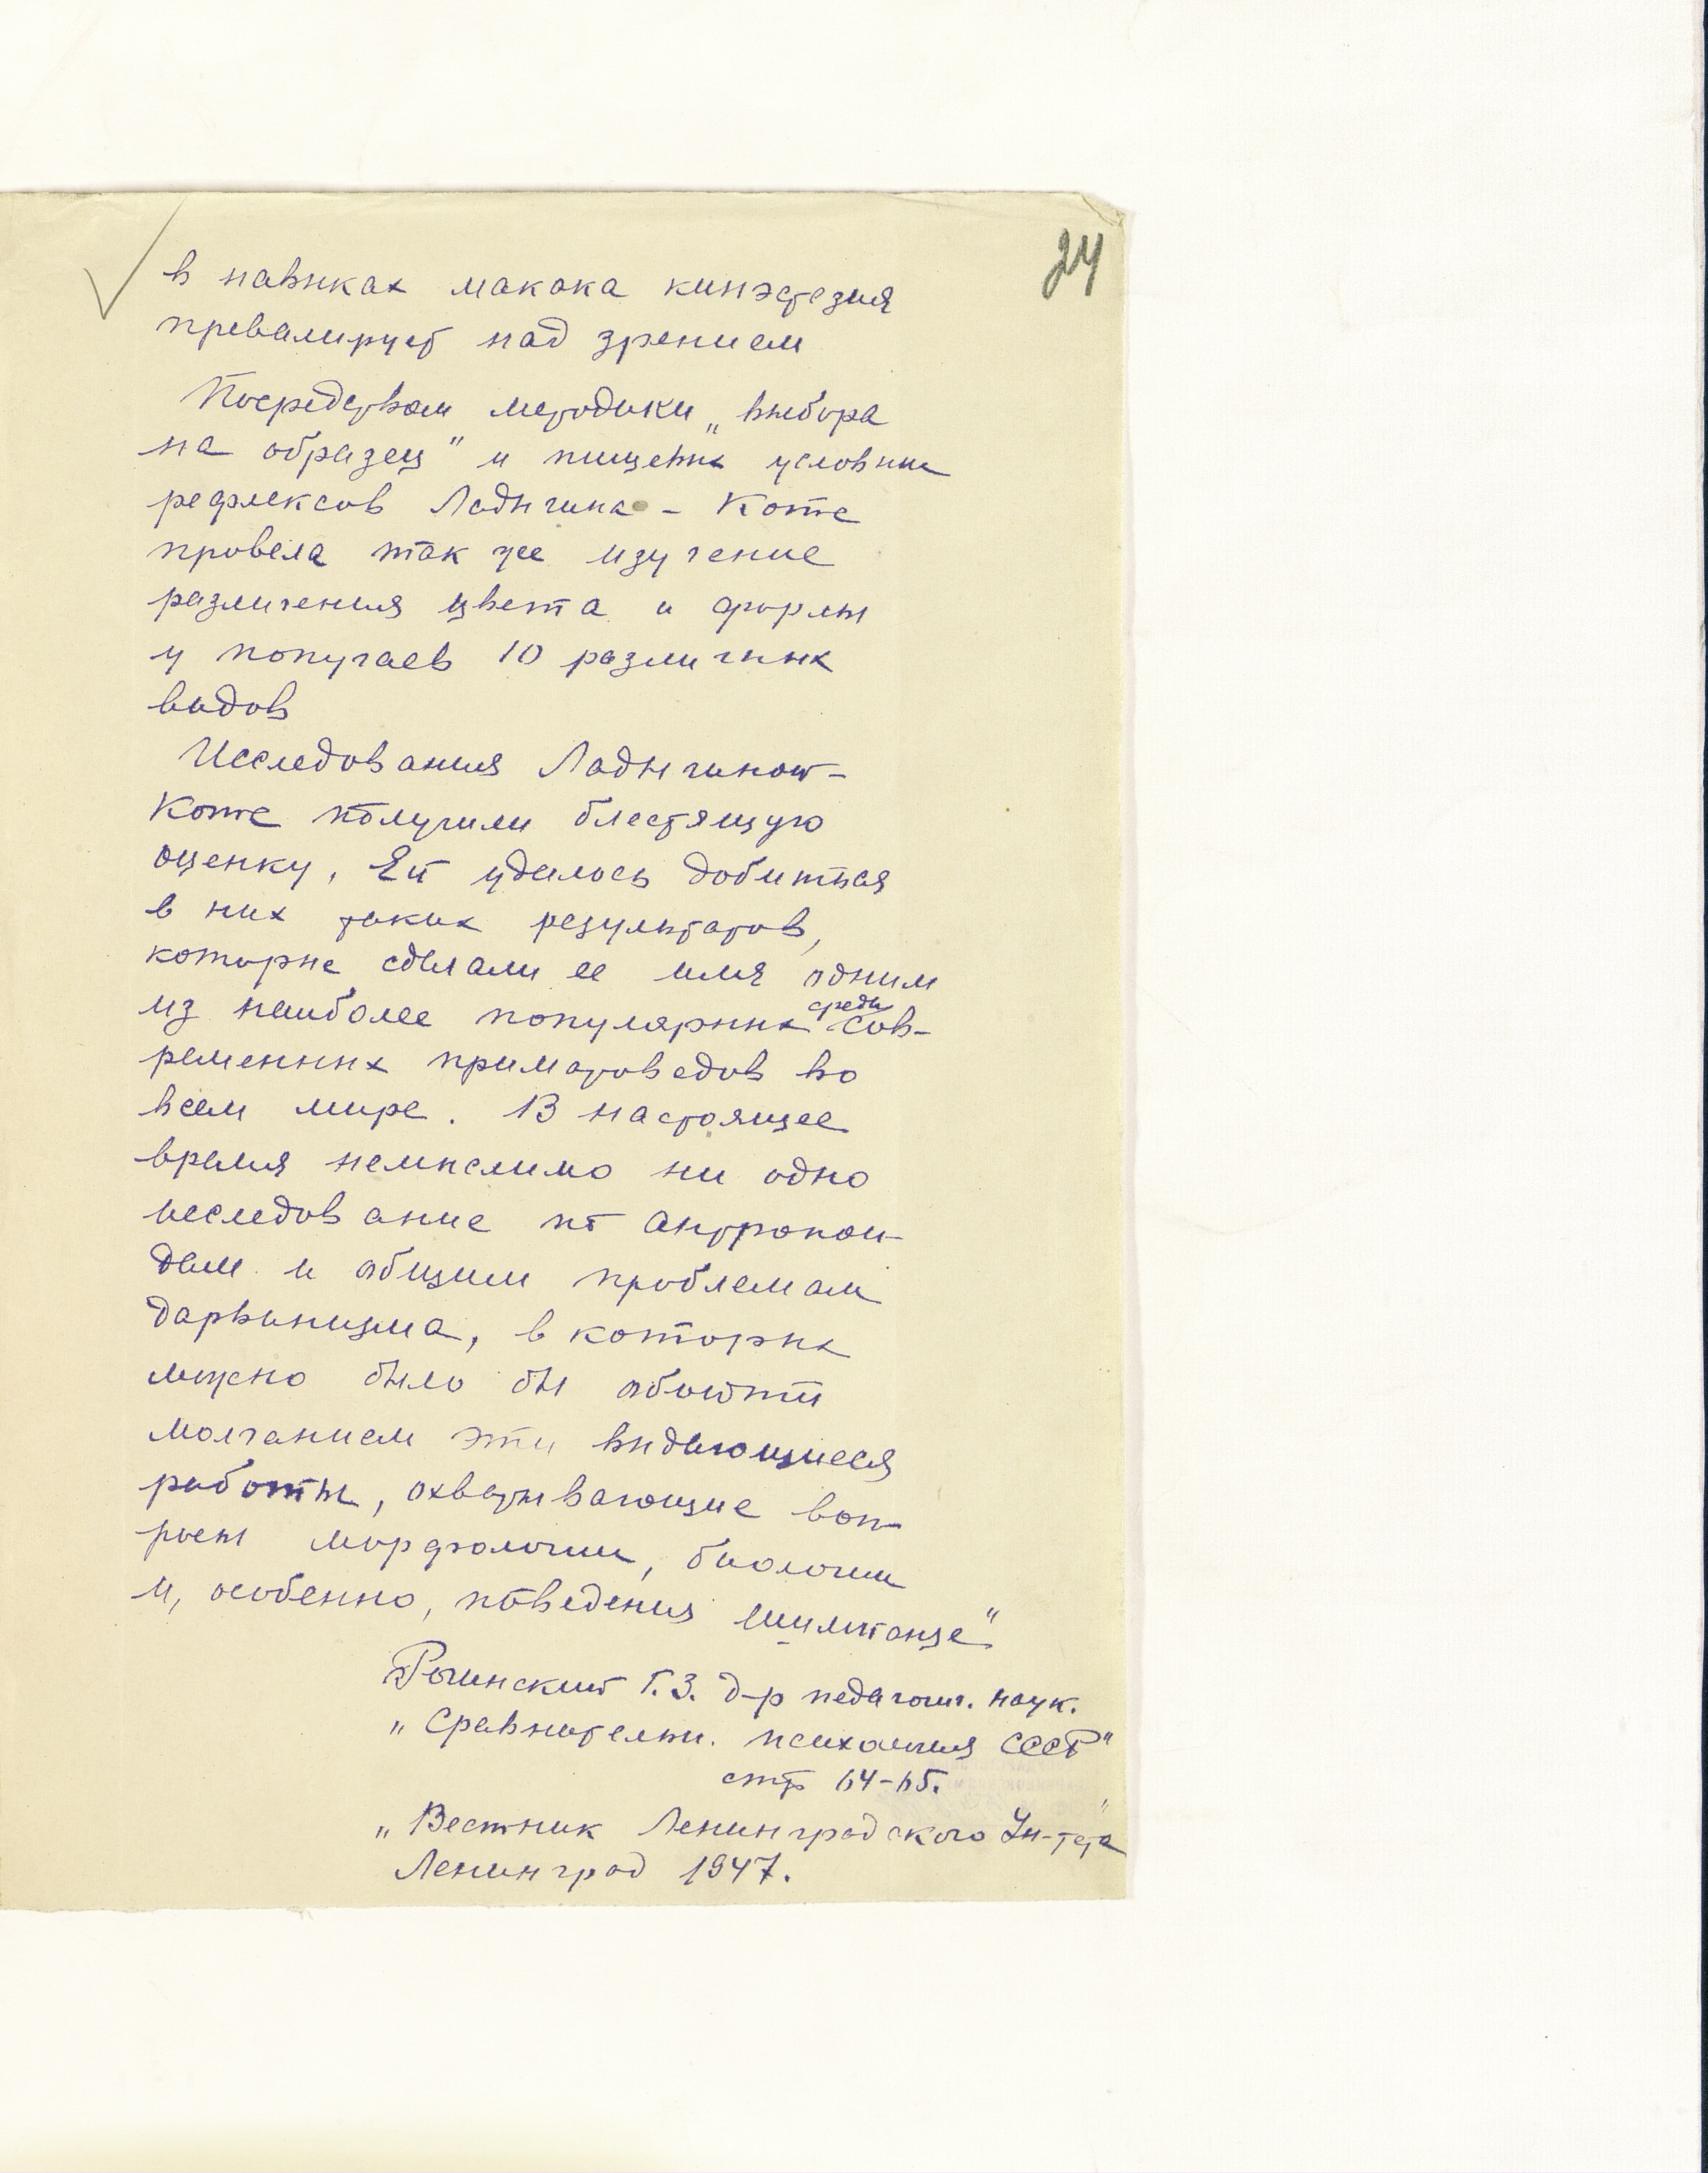 24
в навыках макака кинэстезия
превалирует над зрением
Посредством методики „выбора
на образец" и пищевых условных
рефлексов Ладыгина - Котс
провела так же изучение
различения цвета и формы
у попугаев 10 различных
видов
Исследования Ладыгиной-
Котс получили блестящую
оценку, Ей удалось добиться
в них таких результатов,
которые сделали ее имя одним
из наиболее популярных среди сов-
ременных приматоведов во
всем мире. В настоящее
время немыслимо ни одно
исследование по антропои-
дам и общим проблемам
дарвинизма, в которых
можно было бы обойти
молчанием эти выдающиеся
работы, охватывающие воп-
росы морфологии, биологии
и, особенно, поведения шимпанзе"
Рогинский Г.З. д-р педагогич. наук.
„Сравнительн. психология СССР"
стр 64-65.
„Вестник Ленинградского Ун-тета"
Ленинград 1947.